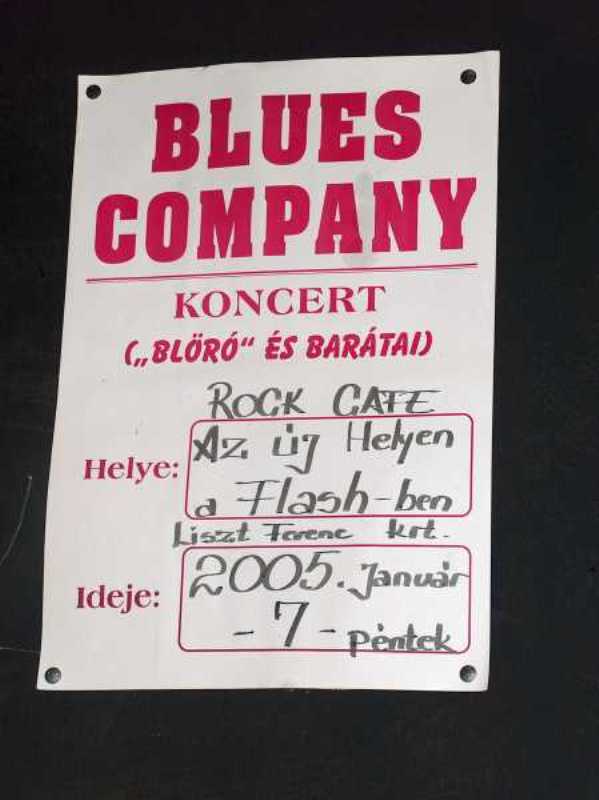 BLUES
COMPANY
KONCERT
(„BLÖRÓ“ ÉS BARÁTAI)
ROCK CAFE
Helye: Az új Helyen
a Flash-ben
Liszt Ferenc krt.
Ideje: 2005. Január
- 7 - péntek